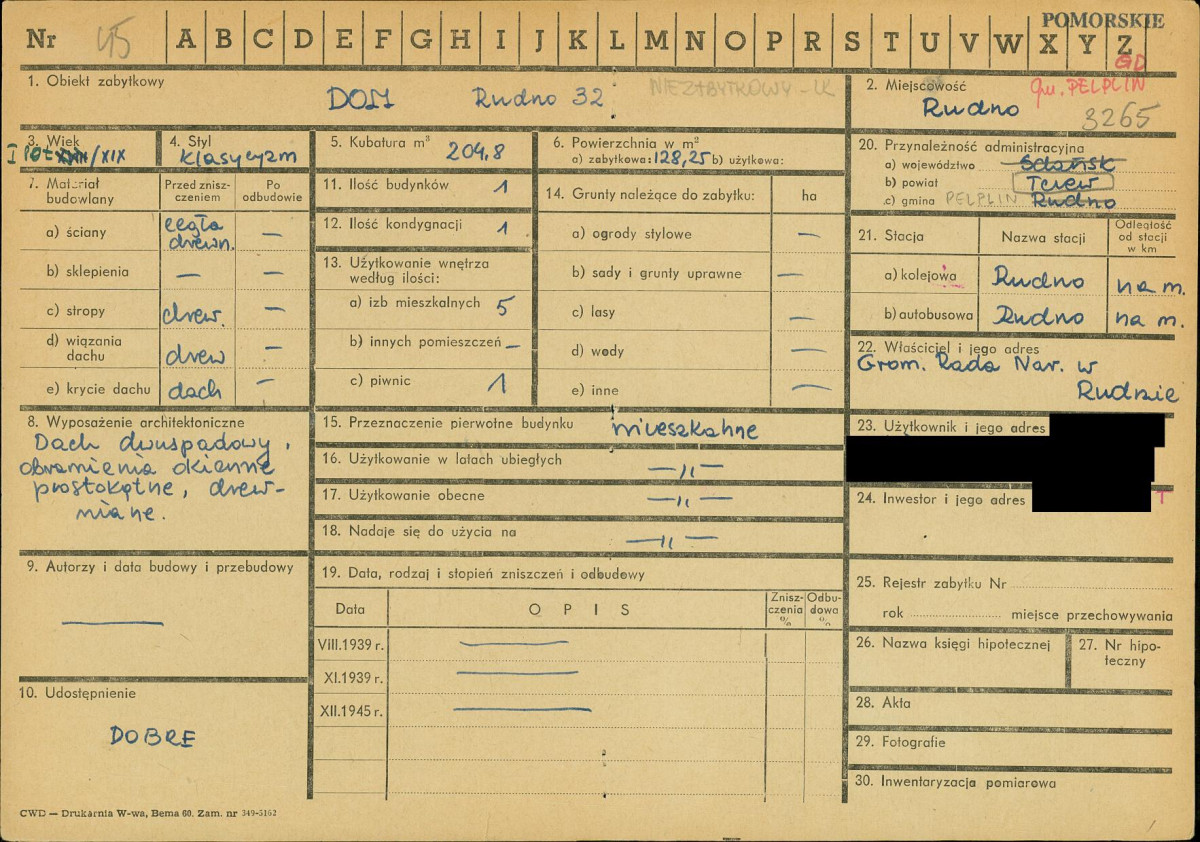 POMORSKIE
Nr 45 A B C D E F G H I J K L M N O P R S T U V W X Y Z
GD
1. Obiekt zabytkowy
DOM Rudno 32
NIEZABYTKOWY - UK
2. Miejscowość
gm. PELPLIN
Rudno
3265
3. Wiek
I poł XVIII/XIX
4. Styl
klasycyzm
5. Kubatura m³ 204,8
6. Powierzchnia w m²
a) zabytkowa: 128,25 b) użytkowa:
7. Materiał budowlany
Przed zniszczeniem
Po odbudowie
a) ściany cegła drewn. —
b) sklepienia — —
c) stropy drew. —
d) wiązania dachu drew —
e) krycie dachu dach —
8. Wyposażenie architektoniczne
Dach dwuspadowy,
obramienia okienne
prostokątne, drew-
niane.
9. Autorzy i data budowy i przebudowy
—
10. Udostępnienie
DOBRE
11. Ilość budynków 1
12. Ilość kondygnacji 1
13. Użytkowanie wnętrza
według ilości:
a) izb mieszkalnych 5
b) innych pomieszczeń —
c) piwnic 1
14. Grunty należące do zabytku: ha
a) ogrody stylowe —
b) sady i grunty uprawne —
c) lasy —
d) wody —
e) inne —
15. Przeznaczenie pierwotne budynku mieszkalne
16. Użytkowanie w latach ubiegłych —"—
17. Użytkowanie obecne —"—
18. Nadaje się do użycia na —"—
19. Data, rodzaj i stopień zniszczeń i odbudowy
Data O P I S Zniszczenia % Odbudowa %
VIII.1939 r. —
XI.1939 r. —
XII.1945 r. —
20. Przynależność administracyjna
a) województwo Gdańsk
b) powiat Tczew
c) gmina PELPLIN Rudno
21. Stacja Nazwa stacji Odległość od stacji w km
a) kolejowa Rudno na m.
b) autobusowa Rudno na m.
22. Właściciel i jego adres
Grom. Rada Nar. w
Rudnie
23. Użytkownik i jego adres
24. Inwestor i jego adres
T
25. Rejestr zabytku Nr
rok miejsce przechowywania
26. Nazwa księgi hipotecznej
27. Nr hipo-
teczny
28. Akta
29. Fotografie
30. Inwentaryzacja pomiarowa
CWD — Drukarnia W-wa, Bema 60. Zam. nr 349-5162